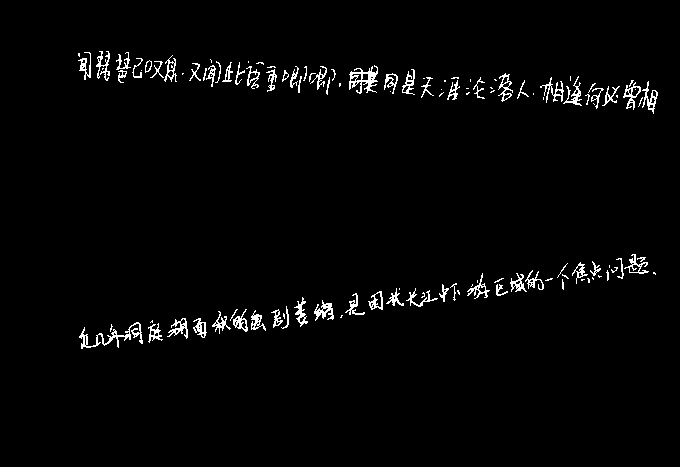 闻琵琶已叹息,又闻此语重唧唧,同是天涯沦落人.相逢何必曾相
近几年洞庭湖面积的急剧萎缩,是困扰长江中下游区域的一个焦点问题、